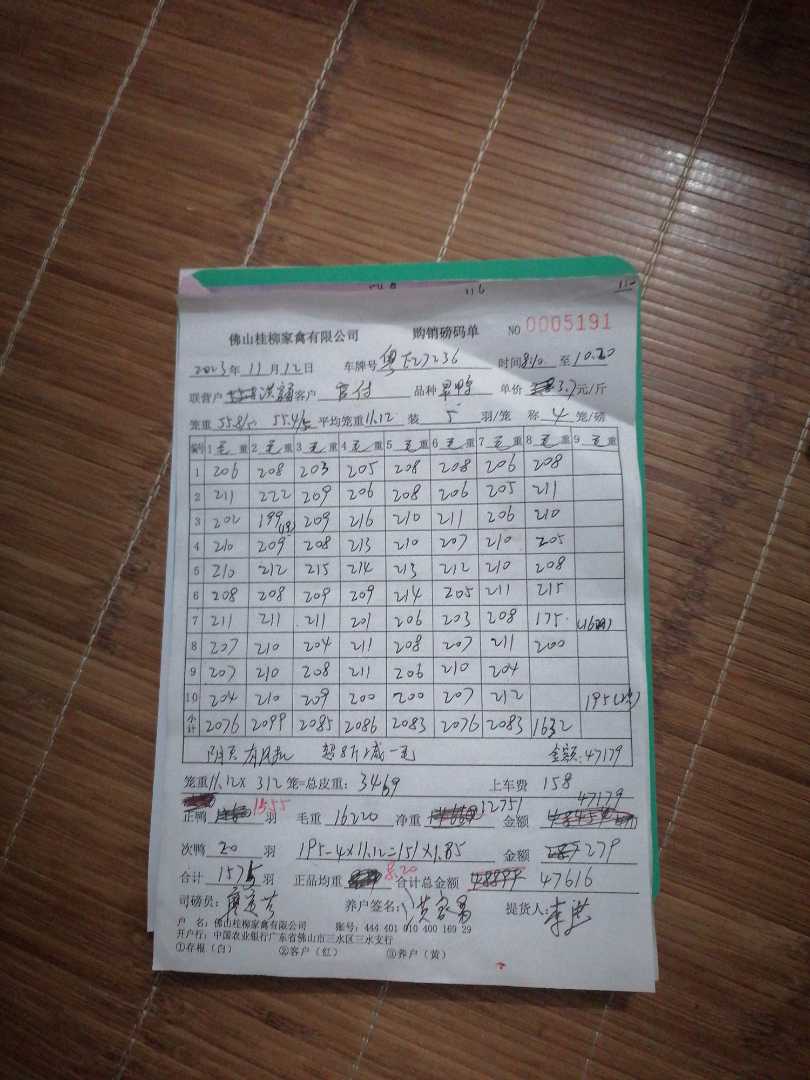 116
佛山桂柳家禽有限公司 购销磅码单 NO 0005191
2023年11月12日 车牌号 粤E27236 时间 8:10 至 10.20
联营户 客户 品种 旱鸭 单价 3.7元/斤
笼重 55.8/ 55.4/ 平均笼重11.12 装 5 羽/笼 称 4 笼/磅
编号 1 毛重 2 毛重 3 毛重 4 毛重 5 毛重 6 毛重 7 毛重 8 毛重 9 毛重
1 206 208 203 205 208 208 206 208
2 211 222 209 206 208 206 205 211
3 202 199 209 216 210 211 206 210
4 210 209 208 213 210 207 210 205
5 210 212 215 214 213 212 210 208
6 208 208 209 209 214 205 211 215
7 211 211 211 201 206 203 208 175.
8 207 210 204 211 208 207 211 200
9 207 210 208 211 206 210 204
10 204 210 209 200 200 207 212 195
小计 2076 2099 2085 2086 2083 2076 2083 1632
超8斤减一毛 金额:47179
笼重11.12× 312 笼=总皮重: 3469 上车费 158
正鸭 1555 羽 毛重 16220 净重 12751 金额 47179
次鸭 20 羽 195-4×11.12=151×1.85 金额 279
合计 1575 羽 正品均重 8.20 合计总金额 48899 47616
司磅员: 养户签名: 提货人:
户 名: 佛山桂柳家禽有限公司 账号: 444 401 010 400 169 29
开户行: 中国农业银行广东省佛山市三水区三水支行
①存根(白) ②客户(红) ③养户(黄)